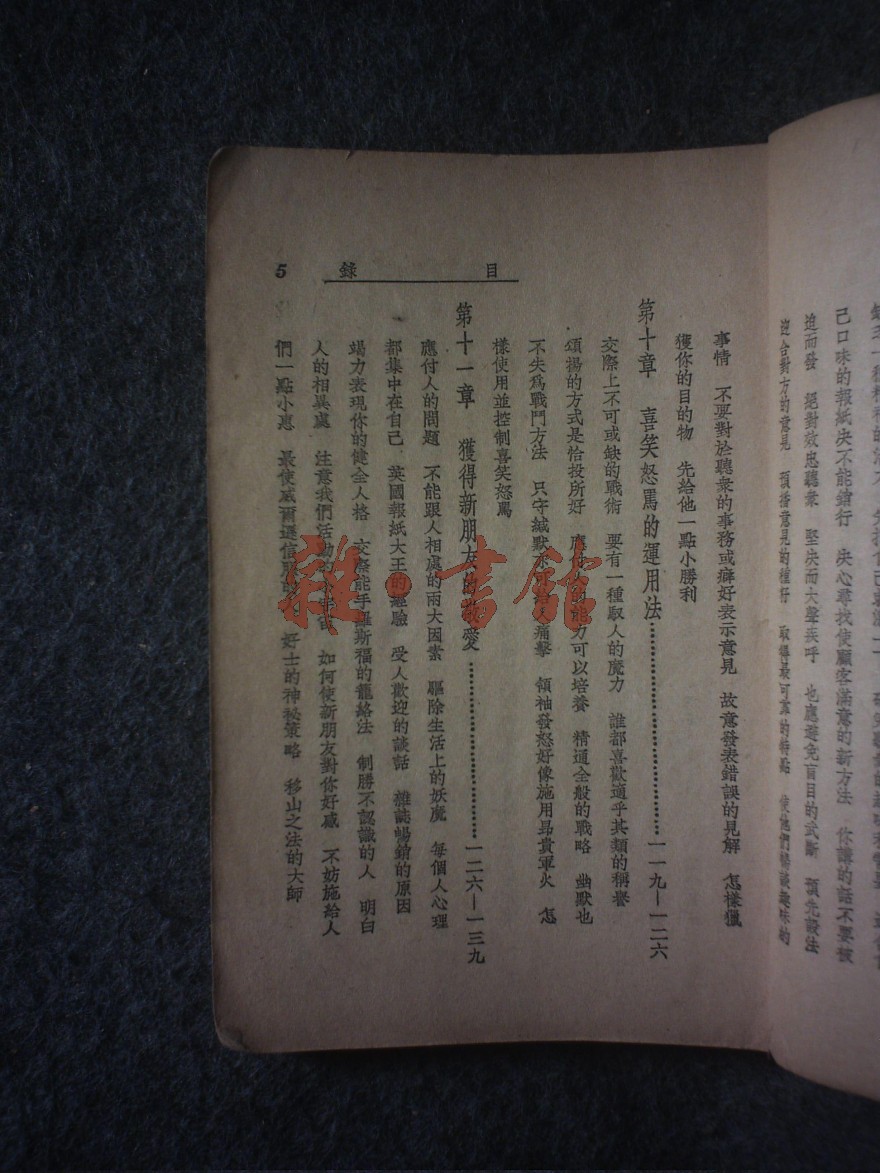 己口味的報紙決不能銷行　決心尋找使顧客滿意的新方法　你講的話不要被
迫而發　絕對效忠聽衆　堅決而大聲疾呼　也應避免盲目的武斷　預先設法
迎合對方的意見
目錄
5
事情　不要對於聽衆的事務或癖好表示意見　故意發表錯誤的見解　怎樣獵
獲你的目的物　先給他一點小勝利
第十章　喜笑怒罵的運用法……一一九—一二六
交際上不可或缺的戰術　要有一種馭人的魔力　誰都喜歡適乎其類的稱譽
頌揚的方式是恰投所好　能力可以培養　精通全般的戰略　幽默也
不失爲戰鬥方法　只守緘默　痛擊　領袖發怒好像施用昂貴軍火　怎
樣使用並控制喜笑怒罵
第十一章　獲得新朋友的敬愛……一二六—一三九
應付人的問題　不能跟人相處的兩大因素　驅除生活上的妖魔　每個人心理
都集中在自己　英國報紙大王的經驗　受人歡迎的談話　雜誌暢銷的原因
竭力表現你的健全人格　交際能手羅斯福的籠絡法　制勝不認識的人　明白
人的相異處　注意我們活動　如何使新朋友對你好感　不妨施給人
們一點小惠　最使威爾遜信服的　好士的神秘策略　移山之法的大師
雜·書館